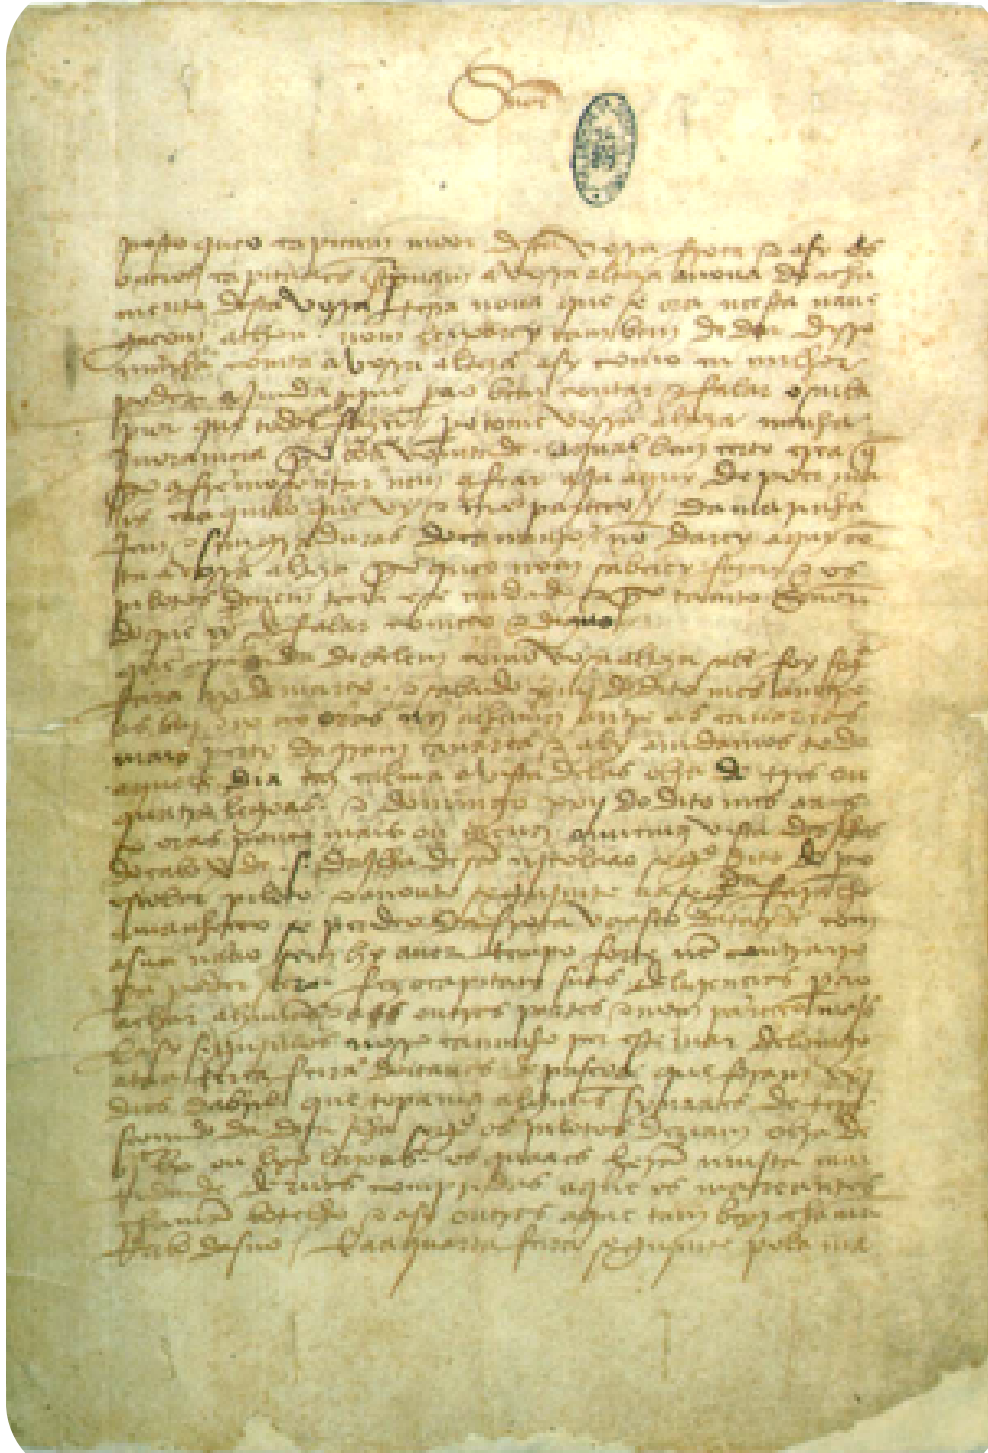 Snor
posto que o capitam moor desta vossa frota e asy os
outros capitaães screpuam a vossa alteza a noua do acha
mento desta vossa terra noua que se ora neesta naue
gaçam achou. nom leixarey tambem de dar disso
minha comta a vossa alteza asy como eu milhor
poder ajmda que pera o bem contar e falar o saiba
pior que todos fazer. pero tome vossa alteza minha
jnoramçia por boa vomtade. a qual bem çerto crea q̃
por afremosentar nem afear aja aquy de poer ma
is ca aquilo que vy e me pareçeo / da marinha
jem e simgraduras do caminho nõ darey aquy cõ
ta a vossa alteza por que o nom saberey fazer e os
pilotos deuem teer ese cuidado e por tanto Snor
do que ey de falar começo e diguo
que a partida de belem como vossa alteza sabe foy segª
feira ix de março. e sabado xiiij do dito mes amtre
as biij e ix oras nos achamos amtre as canareas
mais perto da gram canarea e aly amdamos todo
aquele dia em calma a vista delas obra de tres ou
quatro legoas. e domingo xxij do dito mes aas x
oras pouco mais ou menos ouuemos vista das jlhas
do cabo verde .s. da jlha de sã njcolaao segº dito de pº
escolar piloto. e a noute segujmte aa segda feira lhe
amanheçeo se perdeo da frota vaasco datayde com
a sua naao sem hy auer tempo forte nẽ contrairo
pera poder seer. fez o capitam suas deligençias pera o
achar a huũas e a outras partes e nom pareçeo majs
E asy segujmos nosso caminho per este mar de lomgo
ataa terça feira doitauas de pascoa que foram xxj
dias dabril que topamos alguũs synaaes de tera
seemdo da dita jlha segº os pilotos deziam obra de
bjᶜ lx ou lxx legoas. os quaaes herã mujta cam
tidade deruas compridas a que os mareantes
chamã botelho e asy outras a que tam bem chamã
rrabo dasno / E aa quarta feira segujmte pola ma